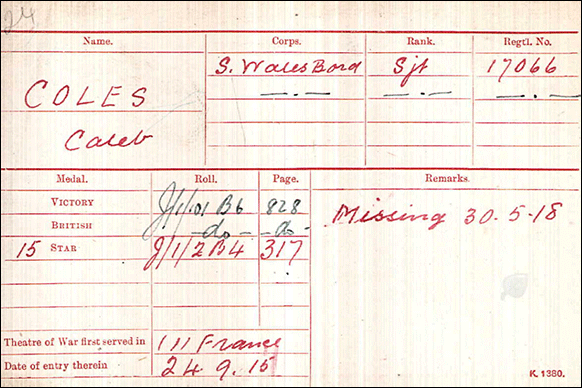 24
Name. Corps. Rank. Regtl. No.
COLES S. Wales Bord Sjt 17066
Caleb — . — — . — — . —
Medal. Roll. Page. Remarks.
VICTORY J/1/101 B6 828 Missing 30-5-18
BRITISH -do- -do-
15 STAR J/1/2 B4 317
Theatre of War first served in (1) France
Date of entry therein 24.9.15
K. 1380.